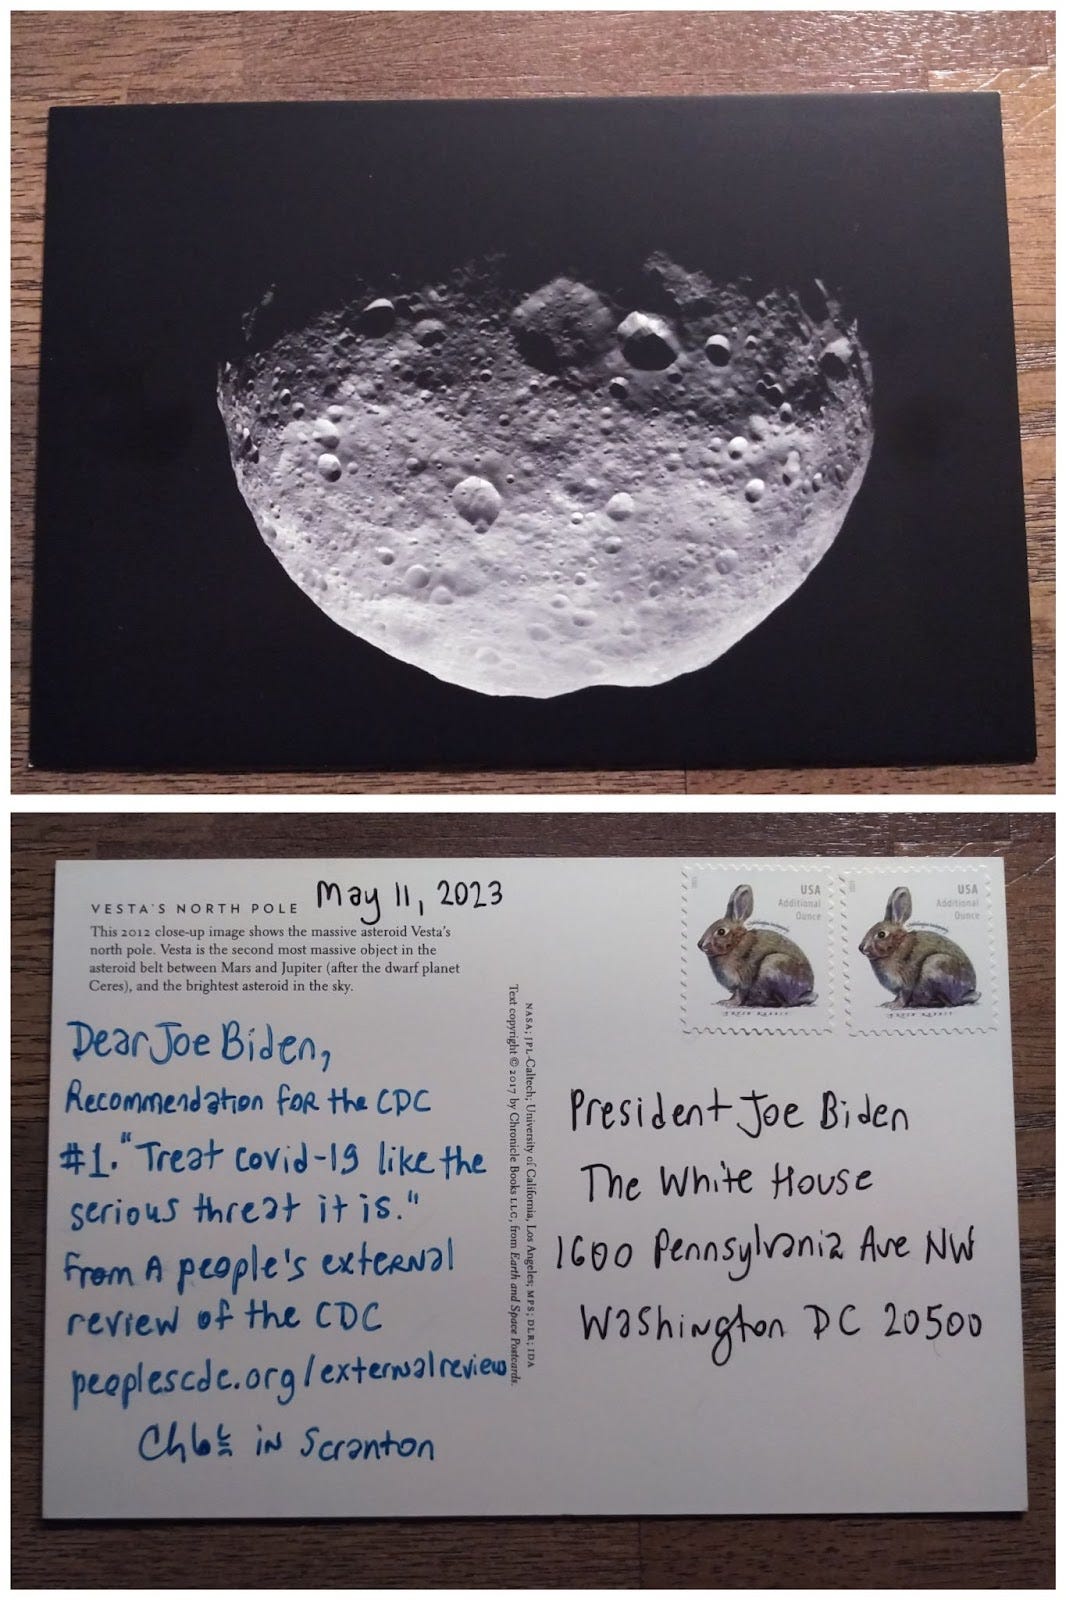 VESTA'S NORTH POLE
May 11, 2023
This 2012 close-up image shows the massive asteroid Vesta's
north pole. Vesta is the second most massive object in the
asteroid belt between Mars and Jupiter (after the dwarf planet
Ceres), and the brightest asteroid in the sky.
Dear Joe Biden,
Recommendation for the CDC
#1. "Treat covid-19 like the
serious threat it is."
from A people's external
review of the CDC
peoplescdc.org/externalreview
in Scranton
NASA; JPL-Caltech; University of California, Los Angeles; MPS; DLR; IDA
Text copyright © 2017 by Chronicle Books LLC, from Earth and Space Postcards.
USA
Additional
Ounce
USA
Additional
Ounce
President Joe Biden
The White House
1600 Pennsylvania Ave NW
Washington DC 20500